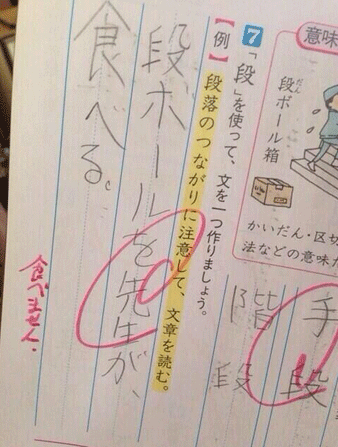 意味
段ボール箱
だん
かいだん・区切
法などの意味
手段
階段
7「段」を使って、文を一つ作りましょう。
【例】段落のつながりに注意して、文章を読む。
段ボールを先生が、
食べる。
食べません。